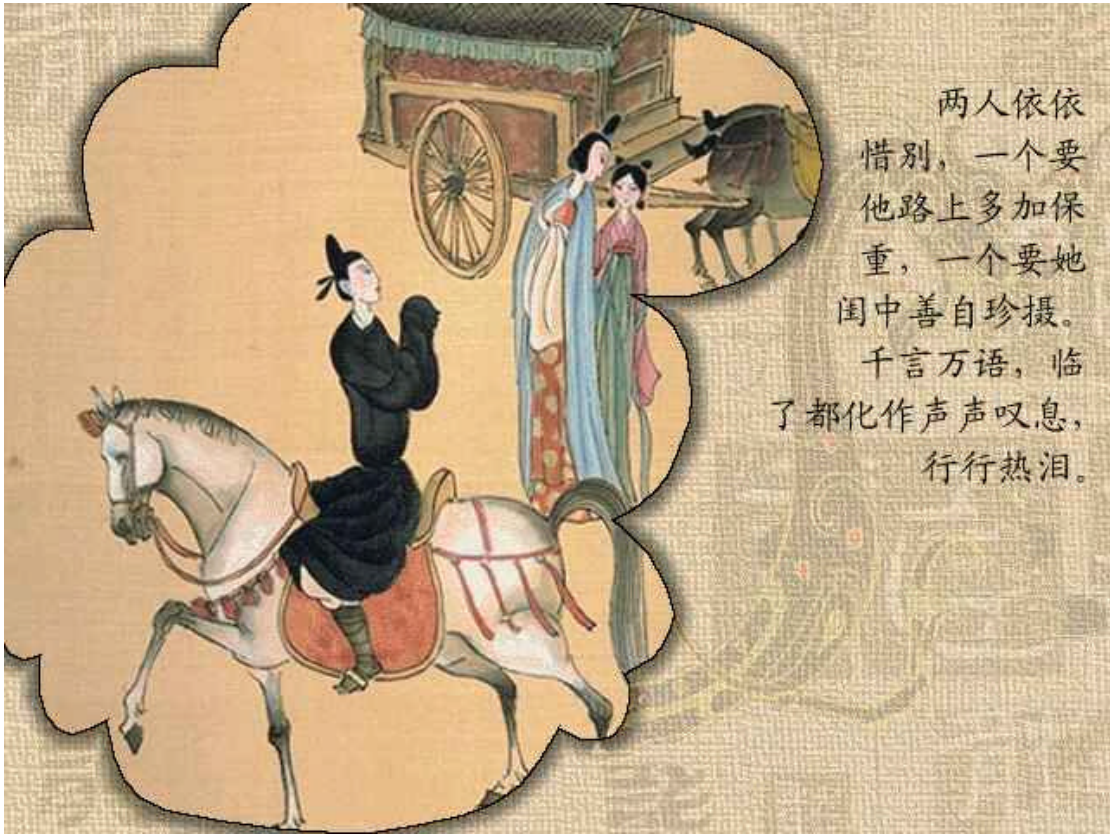 两人依依
惜别，一个要
他路上多加保
重，一个要她
闺中善自珍摄。
千言万语，临
了都化作声声叹息，
行行热泪。